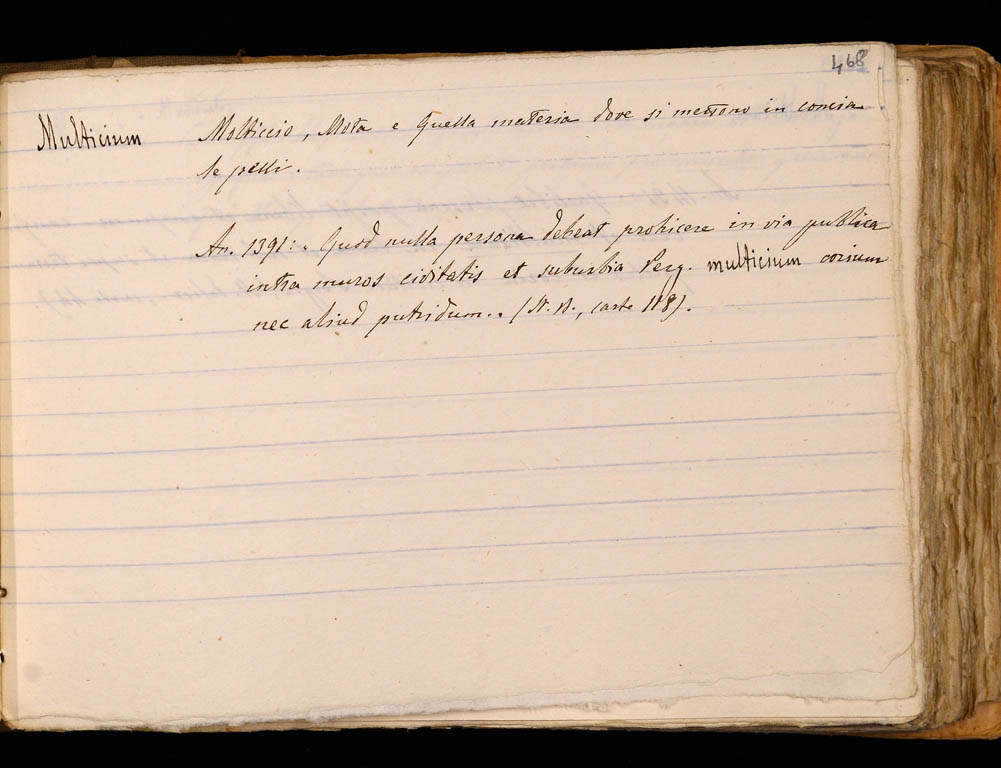 468
Multicium Molticcio, Mota e quella materia dove si mettono in concia
le pelli.
An. 1391: « Quod nulla persona debeat prohicere in via publica
intra muros ciditatis et suburbia Perg. multicium corium
nec aliud putridum. » (St. B., carte 118).